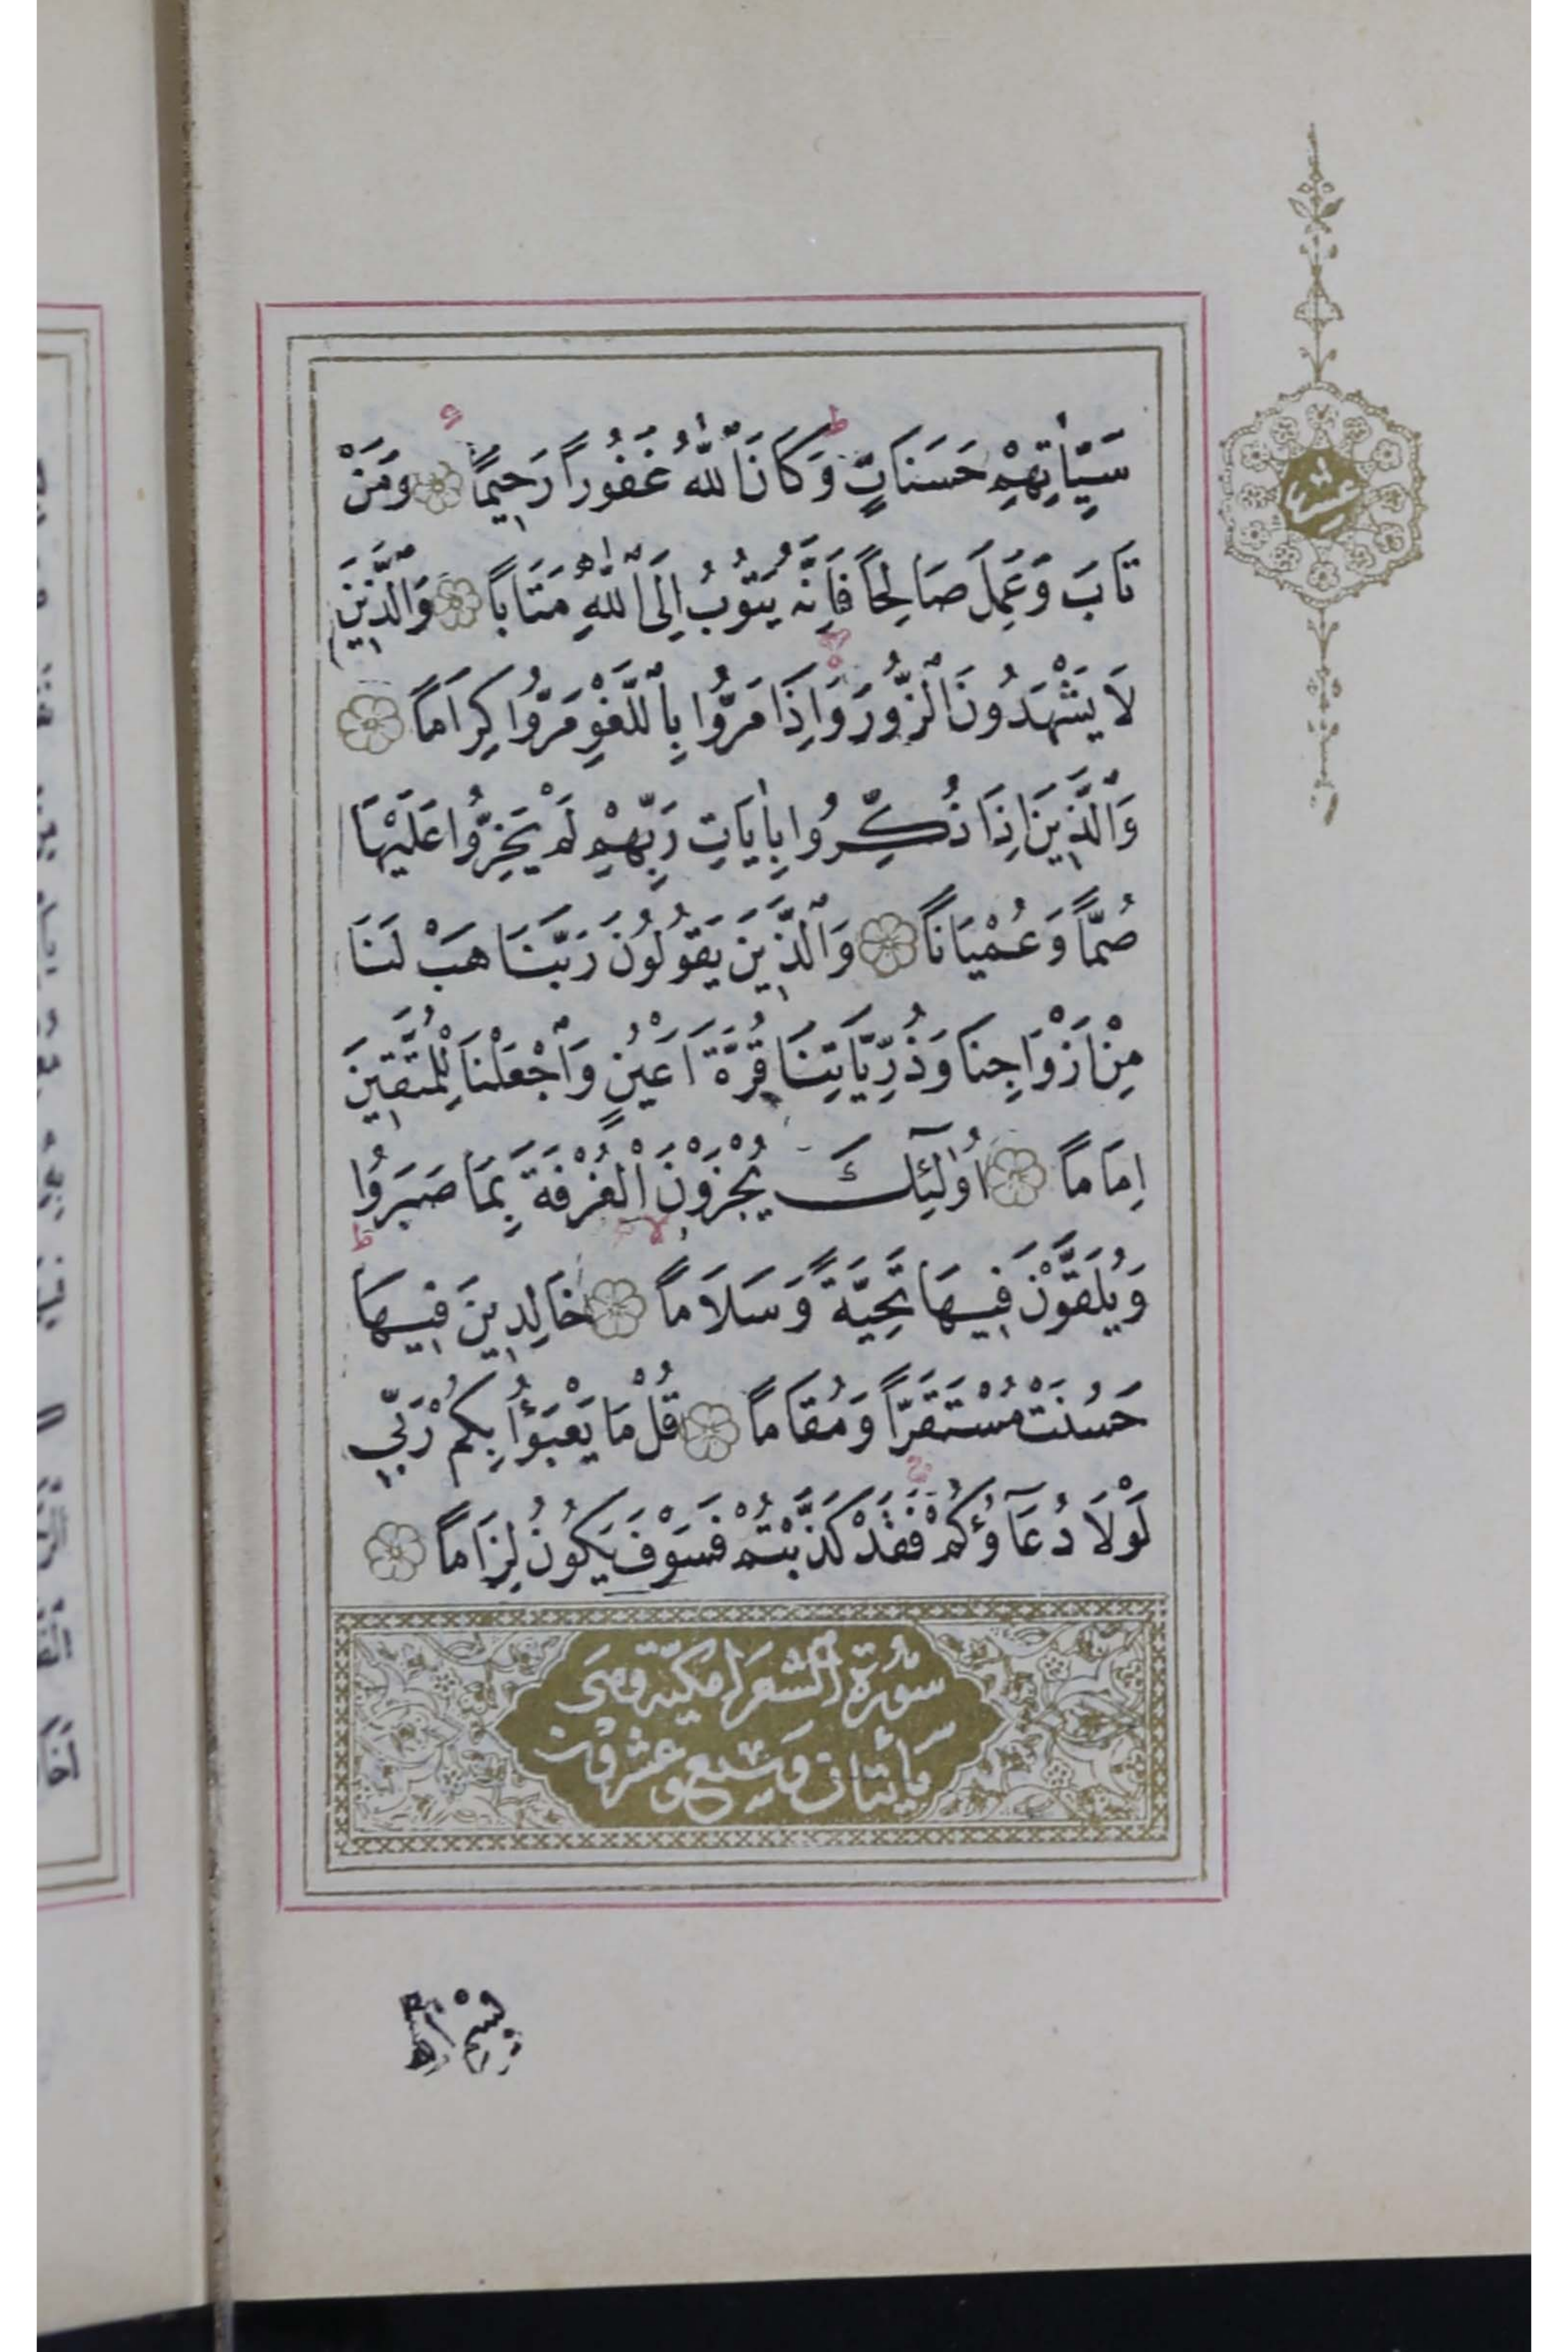 سَيِّاٰتِهِمْ حَسَنَاتٍ وَكَانَ ٱللّٰهُ غَفُوراً رَحِيمًا وَمَنْ
تَابَ وَعَمِلَ صَالِحاً فَاِنَّهُ يَتُوبُ اِلَى ٱللّٰهِ مَتَاباً وَٱلَّذِينَ
لَا يَشْهَدُونَ ٱلزُّورَ وَاِذَا مَرُّوا بِٱللَّغْوِ مَرُّوا كِرَاماً
وَٱلَّذِينَ اِذَا ذُكِّرُوا بِاٰيَاتِ رَبِّهِمْ لَمْ يَخِرُّوا عَلَيْهَا
صُمّاً وَعُمْيَاناً وَٱلَّذِينَ يَقُولُونَ رَبَّنَا هَبْ لَنَا
مِنْ اَزْوَاجِنَا وَذُرِّيَّاتِنَا قُرَّةَ اَعْيُنٍ وَٱجْعَلْنَا لِلْمُتَّقِينَ
اِمَاماً اُوۨلٰٓئِكَ يُجْزَوْنَ ٱلْغُرْفَةَ بِمَا صَبَرُوا
وَيُلَقَّوْنَ فِيهَا تَحِيَّةً وَسَلَاماً خَالِدِينَ فِيهَا
حَسُنَتْ مُسْتَقَرّاً وَمُقَاماً قُلْ مَا يَعْبَؤُا بِكُمْ رَبِّي
لَوْلَا دُعَآؤُكُمْ فَقَدْ كَذَّبْتُمْ فَسَوْفَ يَكُونُ لِزَاماً
سُورَةُ ٱلشُّعَرَا مكيّة وهى
مأيتان وسبع وعشرون
عشر
بِسْمِ